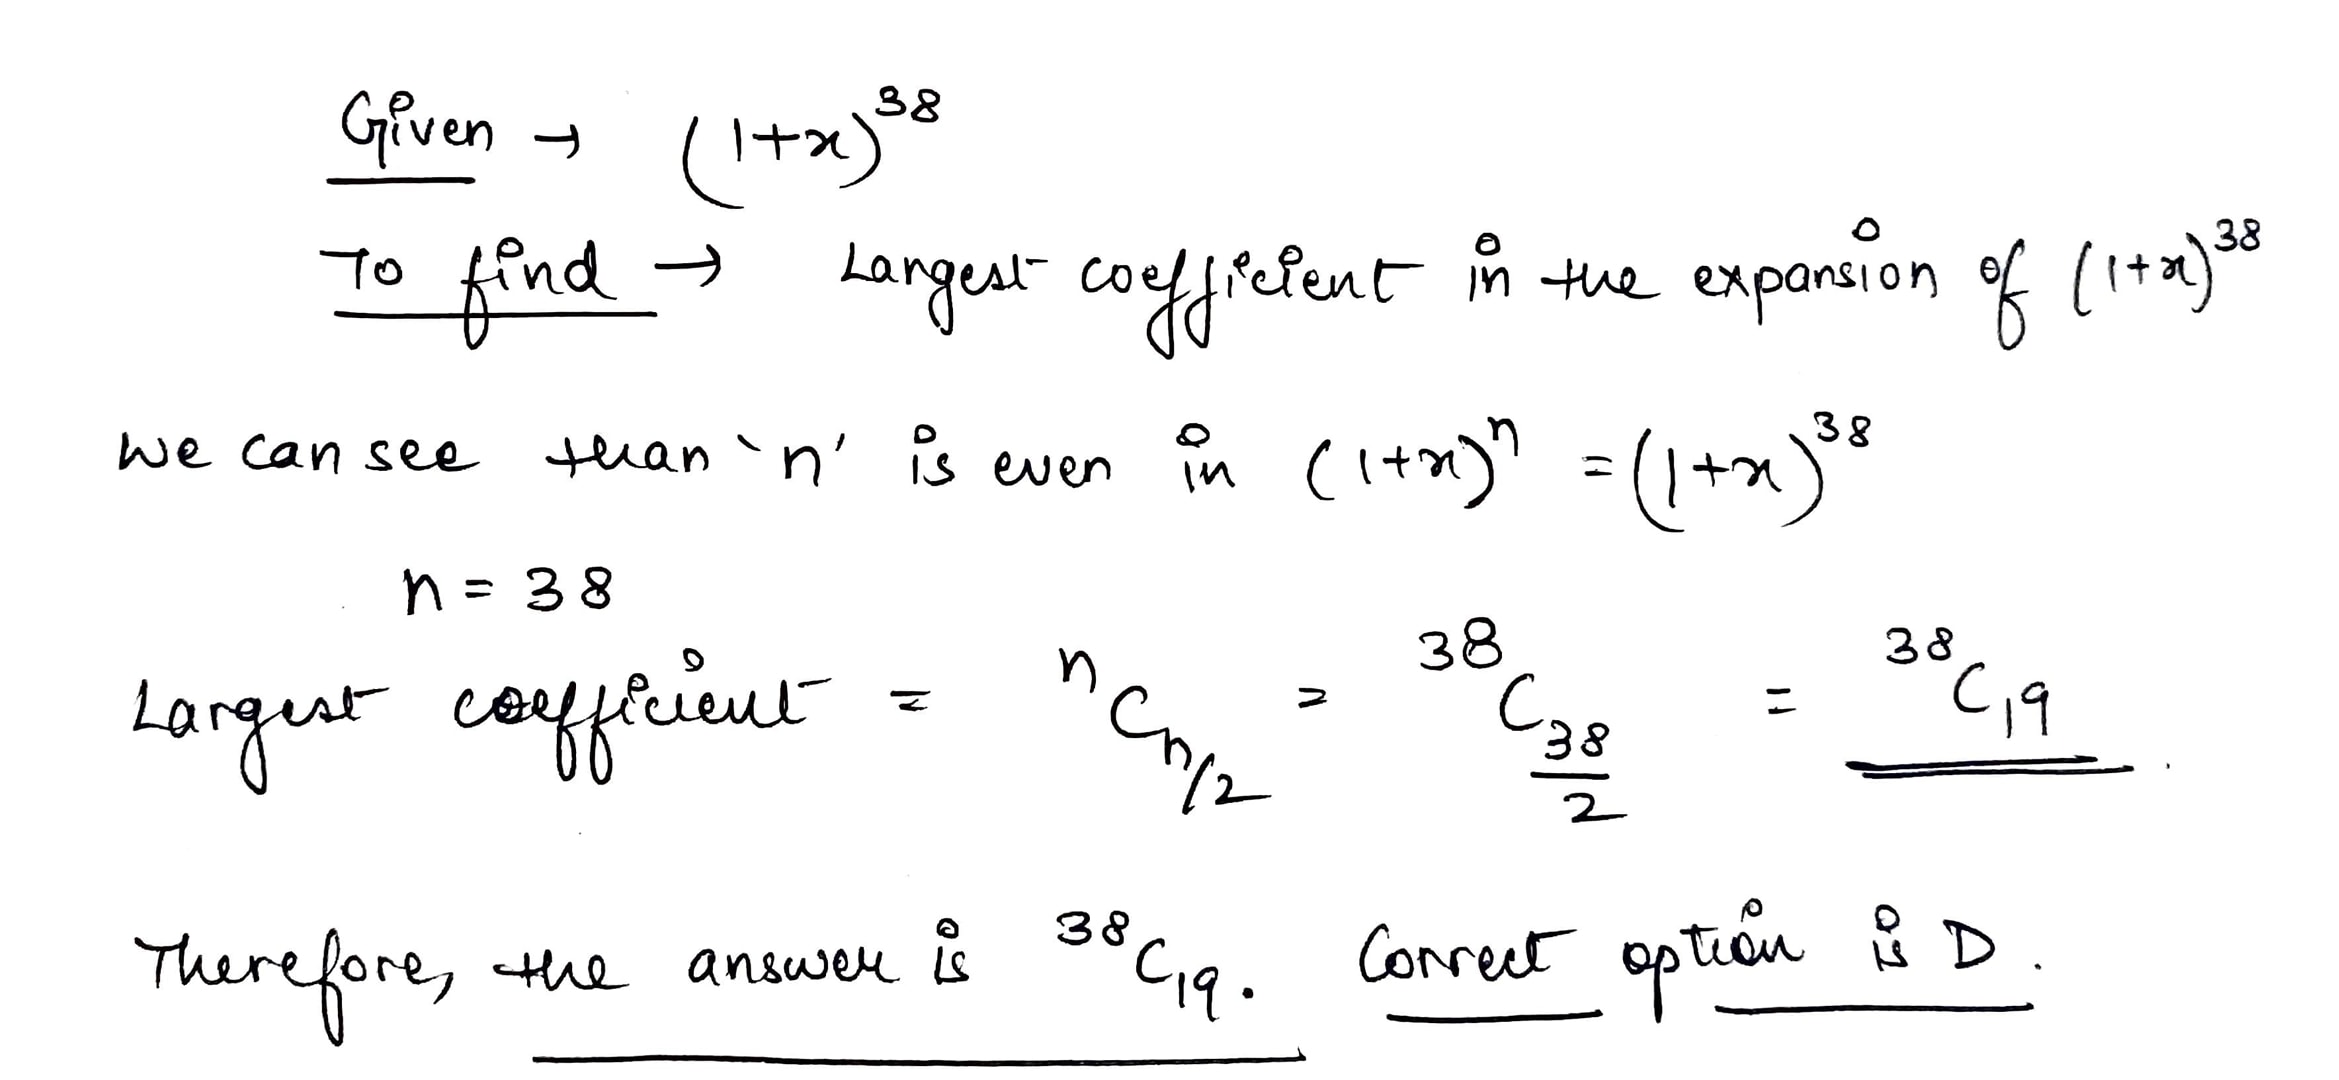 Given → (1+x)³⁸
To find → Largest coefficient in the expansion of (1+x)³⁸
We can see than 'n' is even in (1+x)ⁿ = (1+x)³⁸
n = 38
Largest coefficient = ⁿC_{n/2} = ³⁸C_{38/2} = ³⁸C₁₉.
Therefore, the answer is ³⁸C₁₉. Correct option is D.